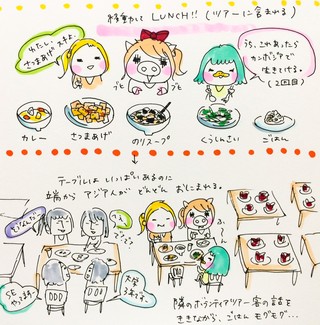 移動して LUNCH!! (ツアーに含まれる)
わたし、
さつまあげ 大すき。
う5、これあったら
カンボジアで
生きてける。
(2回目)
ブヒ
ブヒ
カレー
さつまあげ
のりスープ
くうしんさい
ごはん
テーブルは いっぱい あるのに
端から アジア人が どんどん おにまれる。
なんだ
うん
SE
やってます。
大学
3年です。
ふーん
隣のボランティアツアー客の話を
ききながら、ごはん モグモグ…